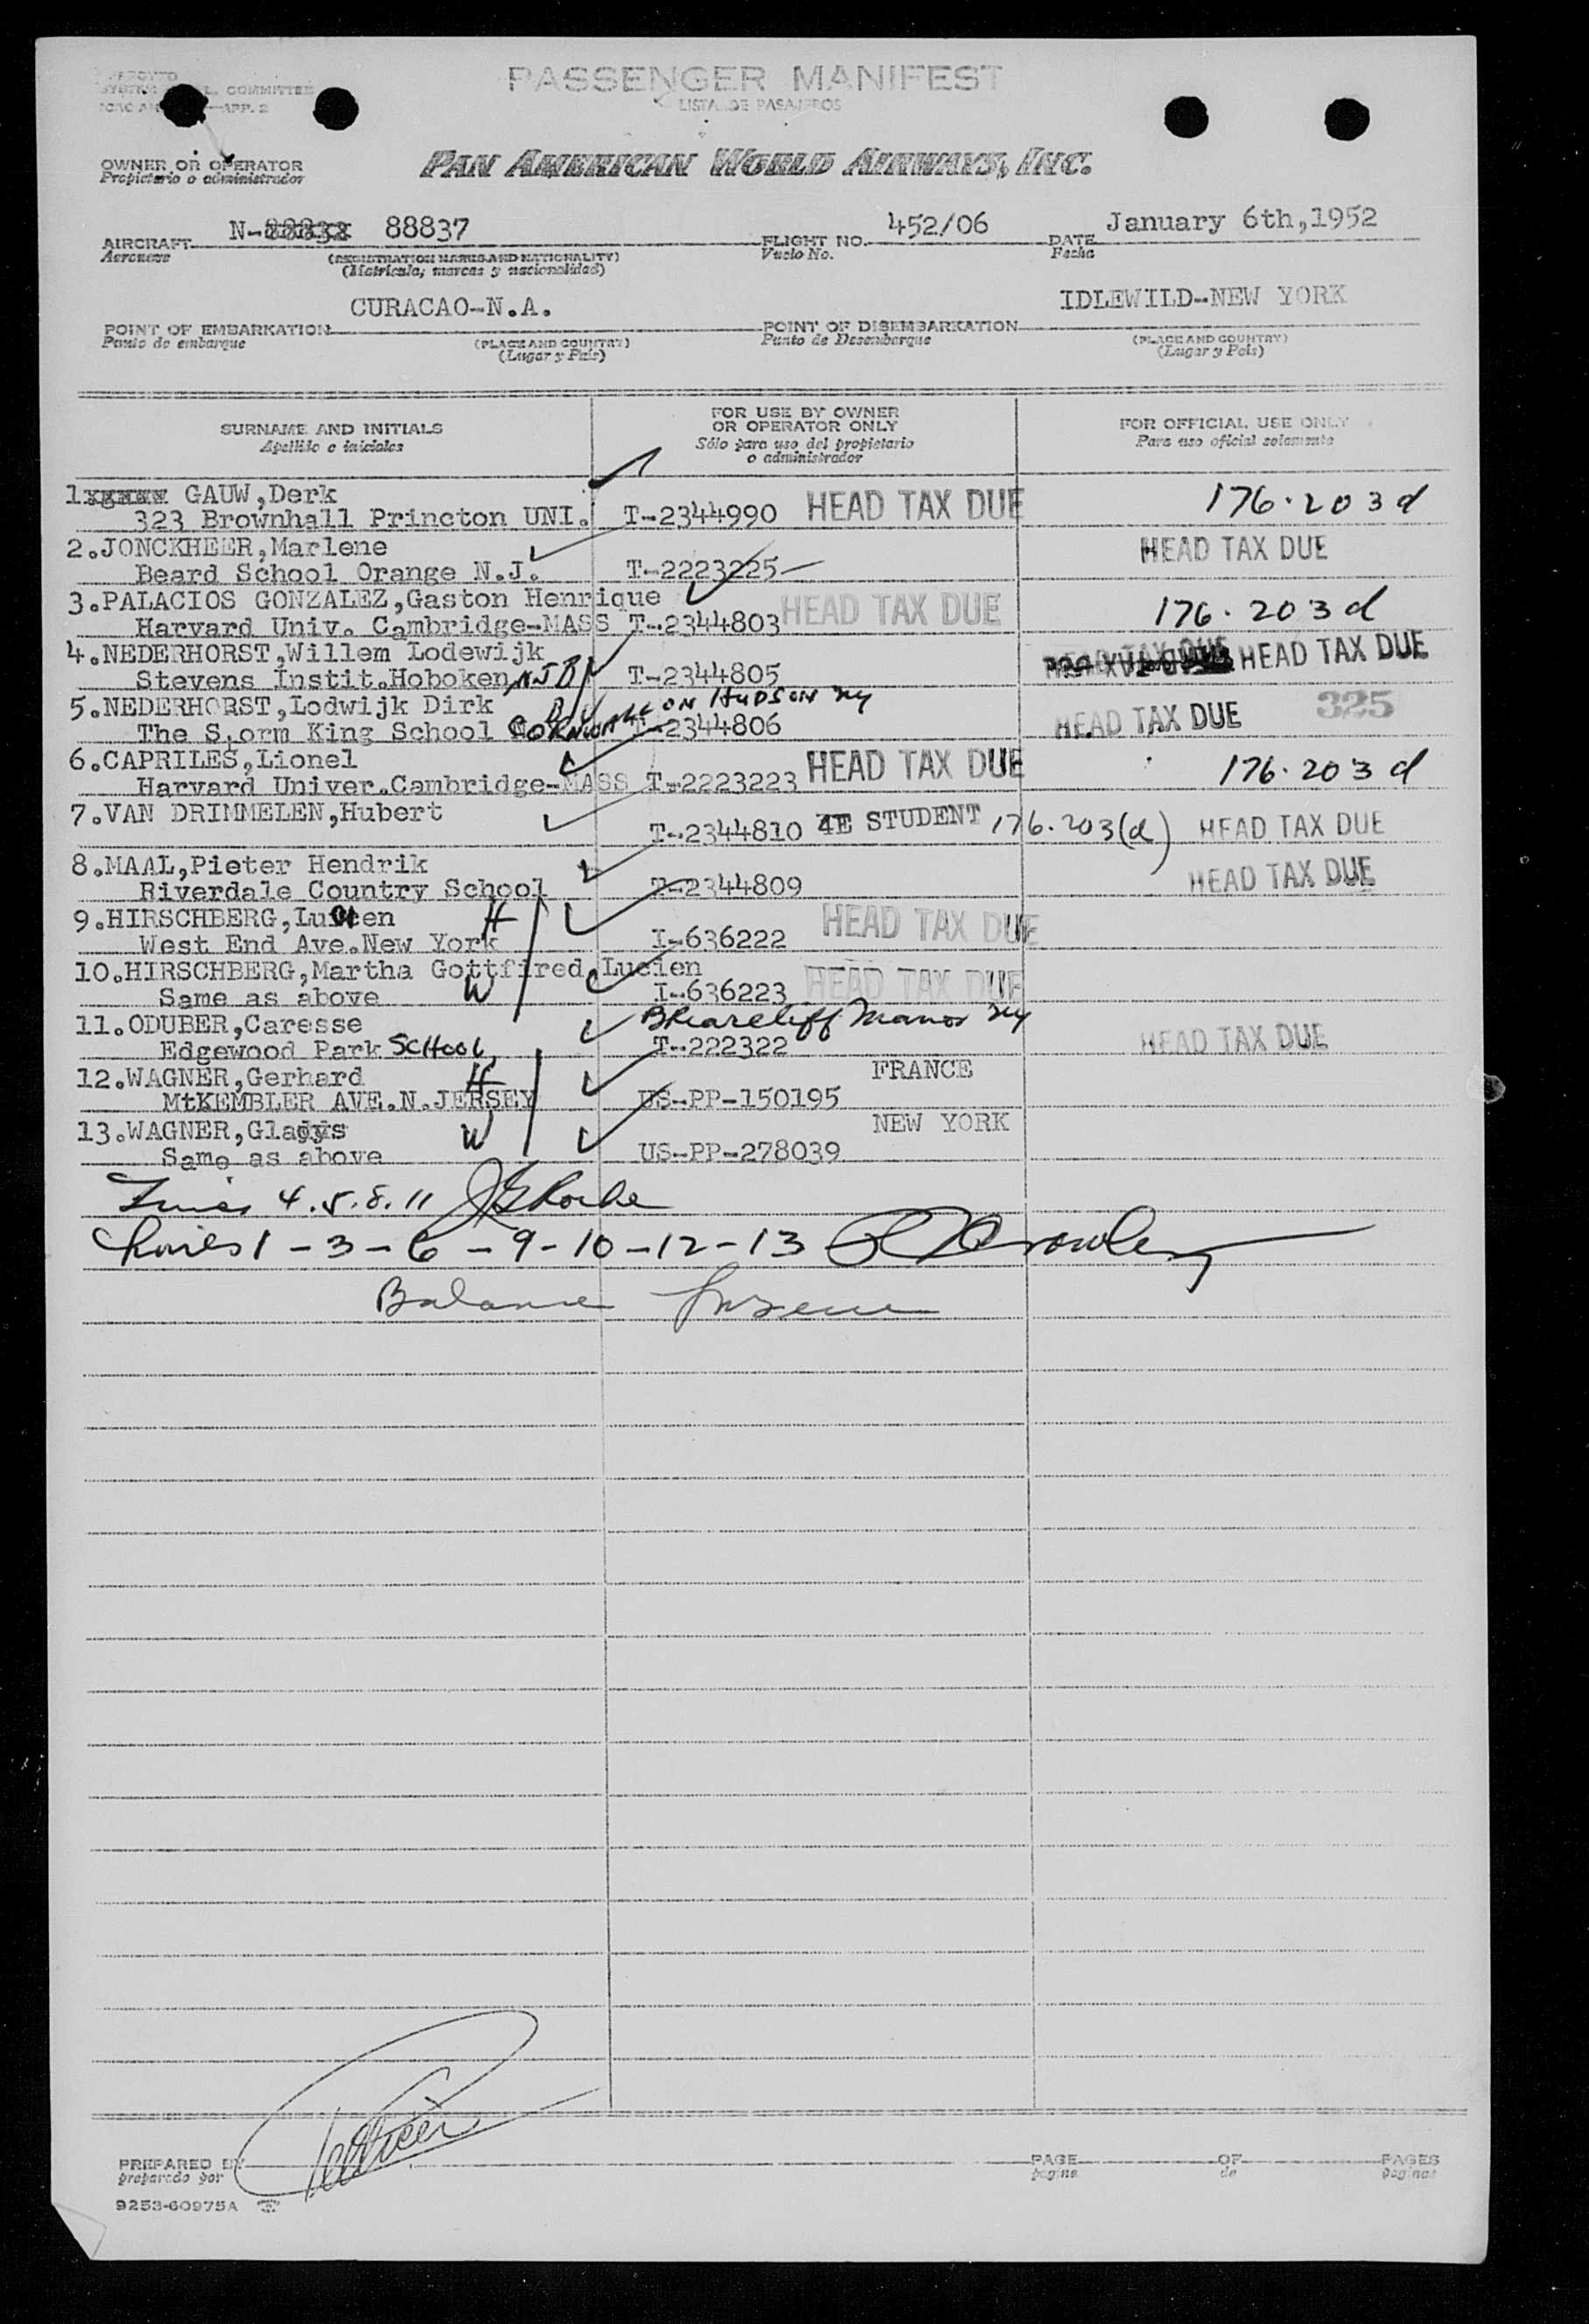 COMMITTEE
APP. 2
PASSENGER MANIFEST
LISTA DE PASAJEROS
OWNER OR OPERATOR
Propietario o administrador
PAN AMERICAN WORLD AIRWAYS, INC.
AIRCRAFT N-88832 88837 FLIGHT NO. 452/06 DATE January 6th,1952
Aeronave (REGISTRATION MARKS AND NATIONALITY) Vuelo No. Fecha
(Matricula, marcas y nacionalidad)
POINT OF EMBARKATION CURACAO-N.A. POINT OF DISEMBARKATION IDLEWILD-NEW YORK
Punto de embarque (PLACE AND COUNTRY) Punto de Desembarque (PLACE AND COUNTRY)
(Lugar y País) (Lugar y País)
SURNAME AND INITIALS
Apellido e iniciales
FOR USE BY OWNER
OR OPERATOR ONLY
Sólo para uso del propietario
o administrador
FOR OFFICIAL USE ONLY
Para uso oficial solamente
1 GAUW,Derk
323 Brownhall Princton UNI. T-2344990 HEAD TAX DUE 176.203 d
2.JONCKHEER,Marlene HEAD TAX DUE
Beard School Orange N.J. T-2223225
3.PALACIOS GONZALEZ,Gaston Henrique
Harvard Univ. Cambridge-MASS T-2344803 HEAD TAX DUE 176.203 d
4.NEDERHORST,Willem Lodewijk HEAD TAX DUE HEAD TAX DUE
Stevens Instit.Hoboken NJ T-2344805
5.NEDERHORST,Lodwijk Dirk ON HUDSON NY 325
The S,orm King School CORNWALL T-2344806 HEAD TAX DUE
6.CAPRILES,Lionel
Harvard Univer.Cambridge-MASS T-2223223 HEAD TAX DUE 176.203 d
7.VAN DRIMMELEN,Hubert
T-2344810 4E STUDENT 176.203(d) HEAD TAX DUE
8.MAAL,Pieter Hendrik
Riverdale Country School T-2344809 HEAD TAX DUE
9.HIRSCHBERG,Lucien H
West End Ave.New York I-636222 HEAD TAX DUE
10.HIRSCHBERG,Martha Gottfired,Lucien
Same as above W I-636223 HEAD TAX DUE
11.ODUBER,Caresse Briarcliff Manor NY
Edgewood Park SCHOOL, T-222322 HEAD TAX DUE
12.WAGNER,Gerhard H FRANCE
MtKEMBLER AVE.N.JERSEY US-PP-150195
13.WAGNER,Gladys W NEW YORK
Same as above US-PP-278039
Lines 4.5.8.11
Lines 1-3-6-9-10-12-13
Balance
PREPARED BY PAGE OF PAGES
preparado por pagina de paginas
9253-60975A